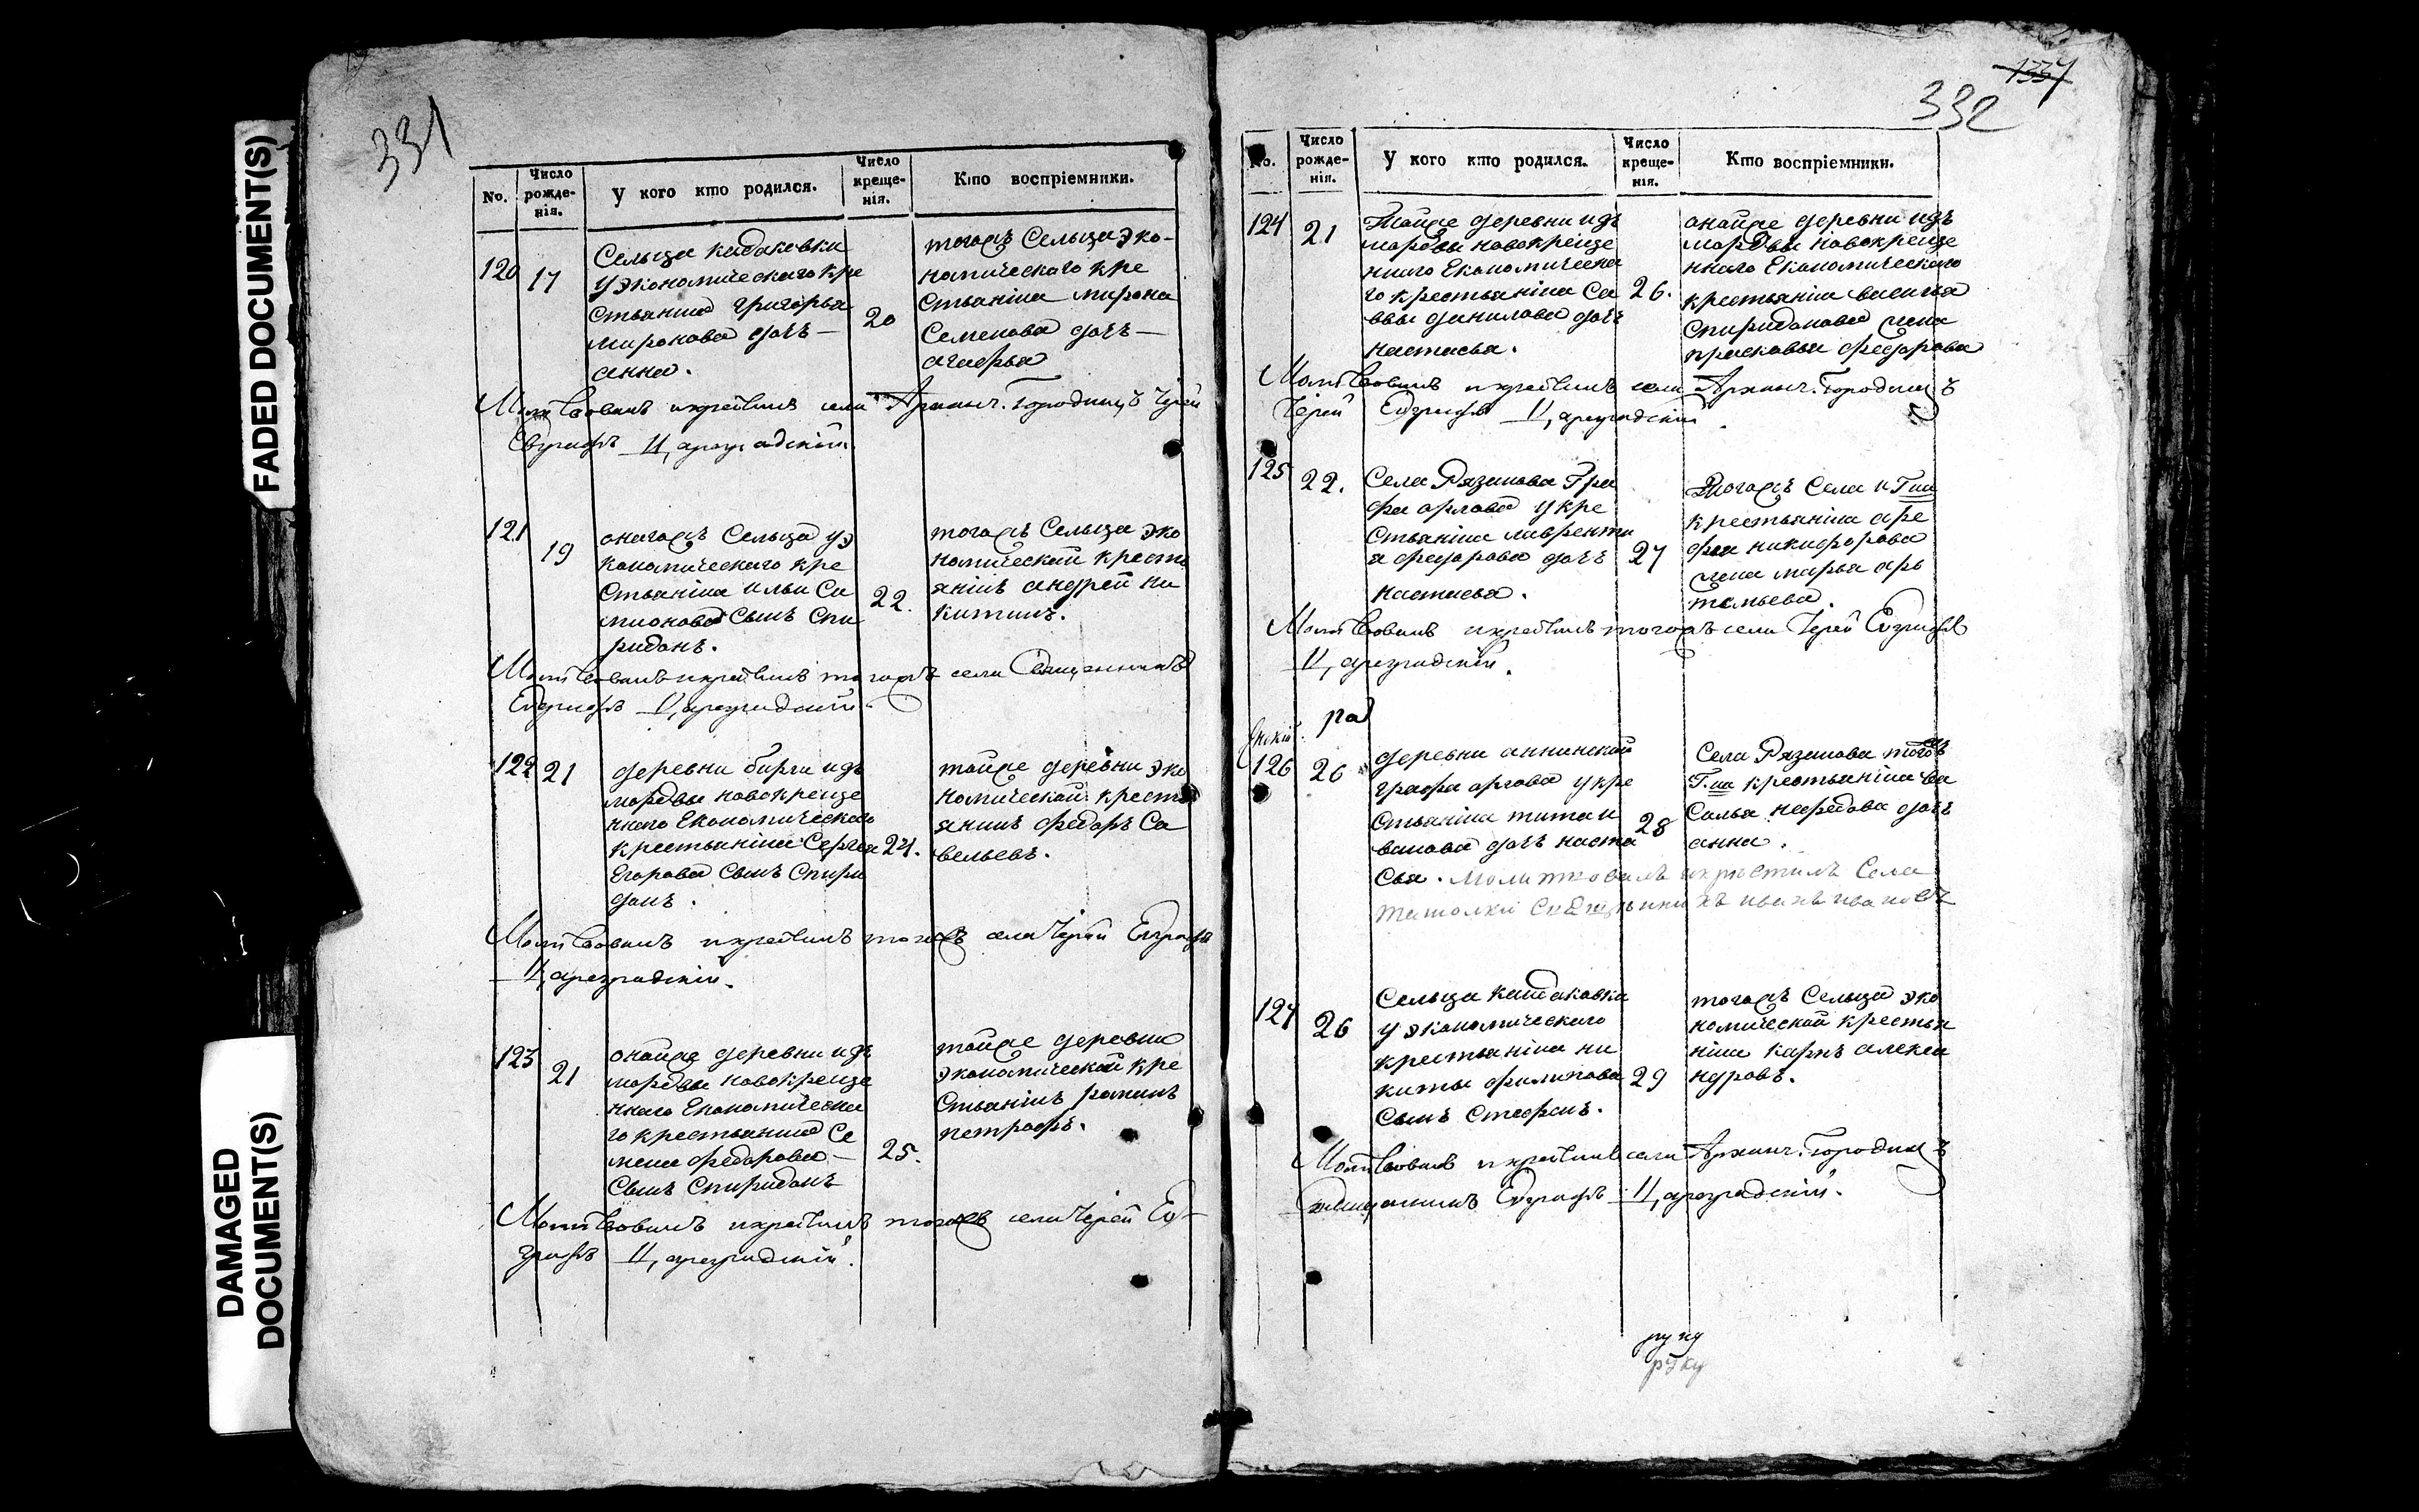 FADED DOCUMENT(S)
DAMAGED
DOCUMENT(S)
331
No.
Число рожде-нія.
У кого кто родился.
Число креще-нія.
Кто воспріемники.
120
17
Сельца кадаковки
у экономическаго кре
стьянина григорья
миронова дочь —
анна.
20
тогожъ Сельца эко-
номическаго кре
стьяніна мирона
Семенова дочь —
агафья
Молитвовалъ и крестилъ села Арханг. Городищъ Іерей
Евграфъ Цареградскій.
121
19
оногожъ Сельца у э
кономическаго кре
стьяніна ильи Си
мионова Сынъ Спи
ридонъ.
22.
тогожъ Сельца эко
номической кресть
янінъ андрей ни
китинъ.
Молитвовалъ и крестилъ тогожъ села Священникъ
Евграфъ Цареградскій.
122
21
деревни бирли изъ
мордвы новокреще
ннаго Економическаго
крестьяніна Сергея
Егорова Сынъ Спири
донъ.
24.
тойже деревни эко
номической кресть
янинъ федоръ Са
вельевъ.
Молитвовалъ и крестилъ тогожъ села Іерей Евграфъ
Цареградскій.
123
21
онойже деревни изъ
мордвы новокреще
ннаго Економическа
го крестьянина Се
мена федорова —
Сынъ Спиридонъ
25.
тойже деревни
экономической кре
стьянінъ романъ
петровъ.
Молитвовалъ и крестилъ тогожъ села Іерей Ев-
графъ Цареградскій.
1337
332
No.
Число рожде-нія.
У кого кто родился.
Число креще-нія.
Кто воспріемники.
124
21
Тойже деревни изъ
мордвы новокреще
ннаго Економическа
го крестьяніна Са
ввы данилова дочь
настасья.
26.
онойже деревни изъ
мордвы новокреще
ннаго Економическаго
крестьяніна василья
Спиридонова жена
прасковья федорова
Молитвовалъ и крестилъ села Арханг. Городищъ
Іерей Евграфъ Цареградскій.
125
22.
Села Рязанова Гра
фа орлова у кре
стьяніна лаврентъ
я федорова дочь
настасья.
27
Тогожъ Села и Г-на
крестьяніна оре
фья никифорова
жена марья ар
темьева.
Молитвовалъ и крестилъ тогожъ села Іерей Евграфъ
Цареградскій.
126
26
деревни аннинской
графа орлова у кре
стьяніна тита и
ванова дочь наста
сья. Молитвовалъ и крестилъ Села
28
Села Рязанова тогожъ
Г-на крестьяніна ва
Силья нефедова дочь
анна.
127
26
Сельца кандаковки
у экономическаго
крестьяніна ни
киты филипова
Сынъ Стефанъ.
29
тогожъ Сельца эко
номической крестья
нінъ карпъ алекса
ндровъ.
Молитвовалъ и крестилъ села Арханг. Городищъ
Священникъ Евграфъ Цареградскій.
руку
руку